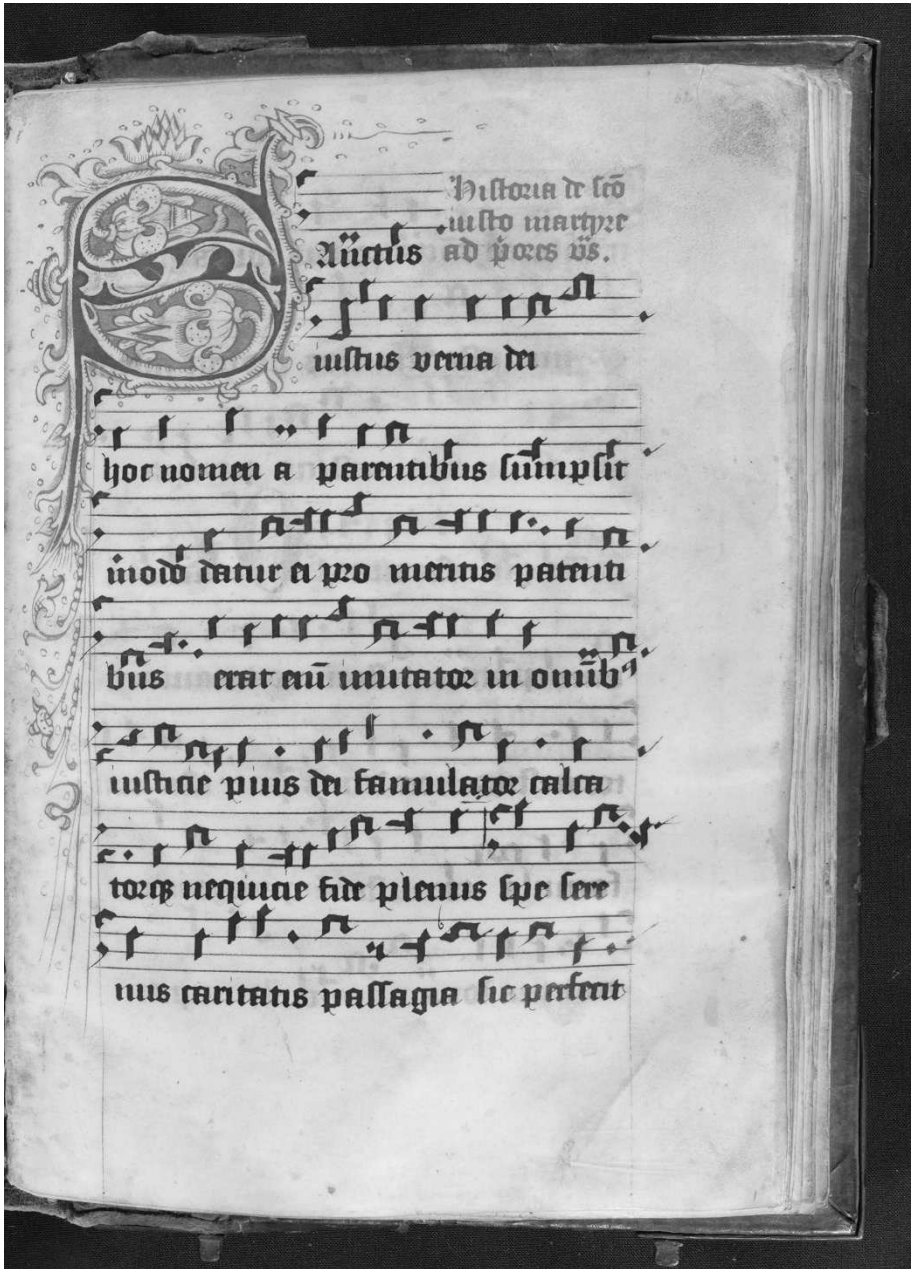 Historia de scō
iusto martyre
SAnctus ad p̄ores v̄s.
iustus verna dei
hoc nomen a parentibus sumpsit
modo datur ei pro meritis patenti
bus erat em̄ imitator in omībꝰ
iusticie pius dei famulator calca
torqꝫ nequicie fide plenus spe sere
nus caritatis passagia sic perfecit